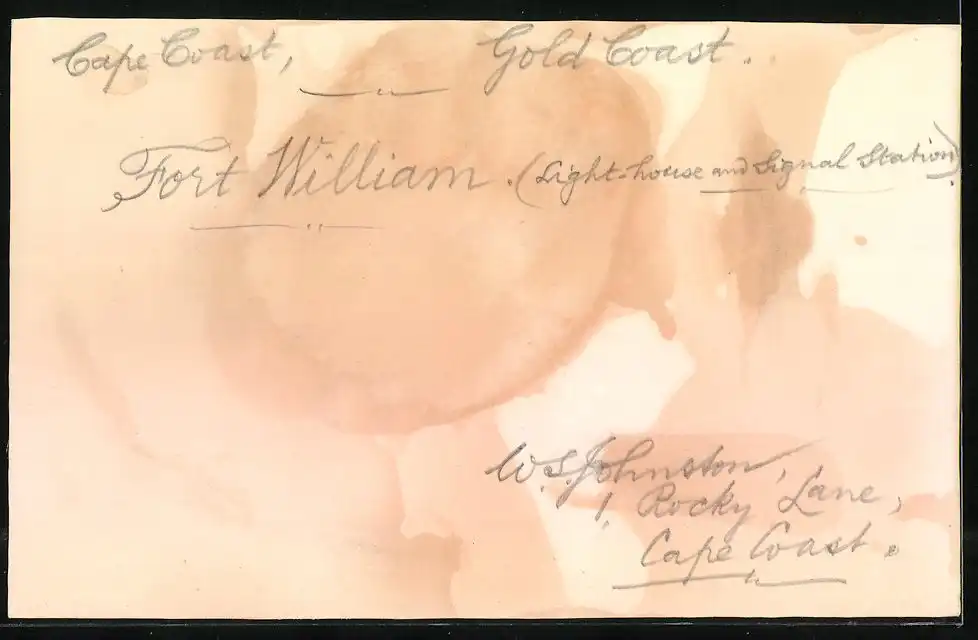 Cape Coast, Gold Coast.
Fort William. (Light-house and Signal Station)
W.S. Johnston,
1 Rocky Lane,
Cape Coast.